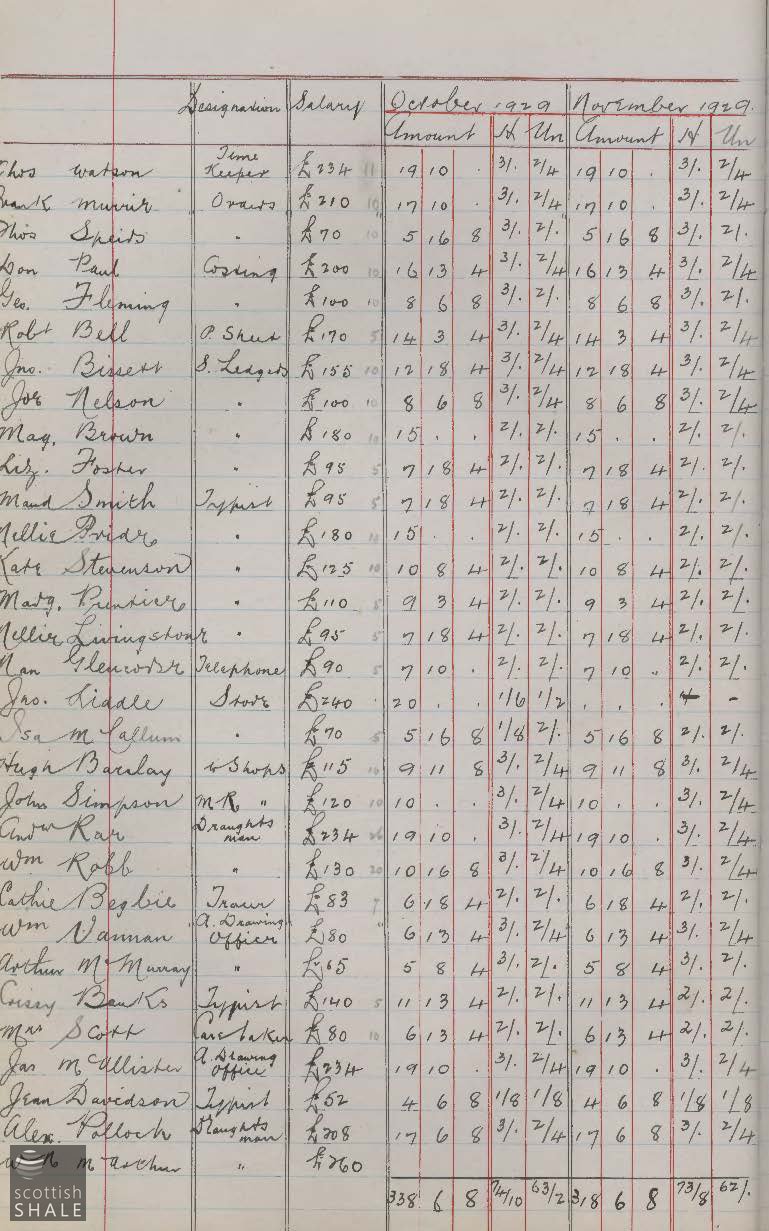 Designation Salary October 1929 November 1929.
Amount H Un Amount H Un
Thos Watson Time Keeper £234 11 19 10 . 3/. 2/4 19 10 . 3/. 2/4
Frank Muvir Orders £210 10 17 10 . 3/. 2/4 17 10 . 3/. 2/4
Thos Speirs " £70 10 5 16 8 3/. 2/. 5 16 8 3/. 2/.
Don Paul Costing £200 10 16 13 4 3/. 2/4 16 13 4 3/. 2/4
Geo. Fleming " £100 10 8 6 8 3/. 2/. 8 6 8 3/. 2/.
Robt Bell P. Sheet £170 5 14 3 4 3/. 2/4 14 3 4 3/. 2/4
Jno. Bissett S. Ledgers £155 10 12 18 4 3/. 2/4 12 18 4 3/. 2/4
Joe Nelson " £100 10 8 6 8 3/. 2/4 8 6 8 3/. 2/4
Mag. Brown " £180 10 15 . . 2/. 2/. 15 . . 2/. 2/.
Liz. Foster " £95 5 7 18 4 2/. 2/. 7 18 4 2/. 2/.
Maud Smith Typist £95 5 7 18 4 2/. 2/. 7 18 4 2/. 2/.
Nellie Pride " £180 10 15 . . 2/. 2/. 15 . . 2/. 2/.
Kate Stevenson " £125 10 10 8 4 2/. 2/. 10 8 4 2/. 2/.
Marg. Prentice " £110 5 9 3 4 2/. 2/. 9 3 4 2/. 2/.
Nellie Livingstone " £95 5 7 18 4 2/. 2/. 7 18 4 2/. 2/.
Nan Glencorse Telephone £90 5 7 10 . 2/. 2/. 7 10 . 2/. 2/.
Jno. Liddle Store £240 20 . . 1/6 1/2 . . . -
Isa McCallum " £70 5 5 16 8 1/8 2/. 5 16 8 2/. 2/.
Hugh Barclay W Shops £115 10 9 11 8 3/. 2/4 9 11 8 3/. 2/4
John Simpson M R " £120 10 10 . . 3/. 2/4 10 . . 3/. 2/4
Andw Rae Draughtsman £234 26 19 10 . 3/. 2/4 19 10 . 3/. 2/4
Wm Robb " £130 20 10 16 8 3/. 2/4 10 16 8 3/. 2/4
Cathie Begbie Tracer £83 7 6 18 4 2/. 2/. 6 18 4 2/. 2/.
Wm Vannan A. Drawing Officer £80 6 13 4 3/. 2/4 6 13 4 3/. 2/4
Arthur McMurray " £65 5 8 4 3/. 2/. 5 8 4 3/. 2/.
Crissy Banks Typist £140 5 11 13 4 2/. 2/. 11 13 4 2/. 2/.
Mrs Scott Caretaker £80 10 6 13 4 2/. 2/. 6 13 4 2/. 2/.
Jas McAllister A. Drawing Office £234 19 10 . 3/. 2/4 19 10 . 3/. 2/4
Jean Davidson Typist £52 4 6 8 1/8 1/8 4 6 8 1/8 1/8
Alex. Pollock Draughtsman £208 17 6 8 3/. 2/4 17 6 8 3/. 2/4
McArthur " £260
338 6 8 74/10 63/2 318 6 8 73/8 62/.
scottish
SHALE